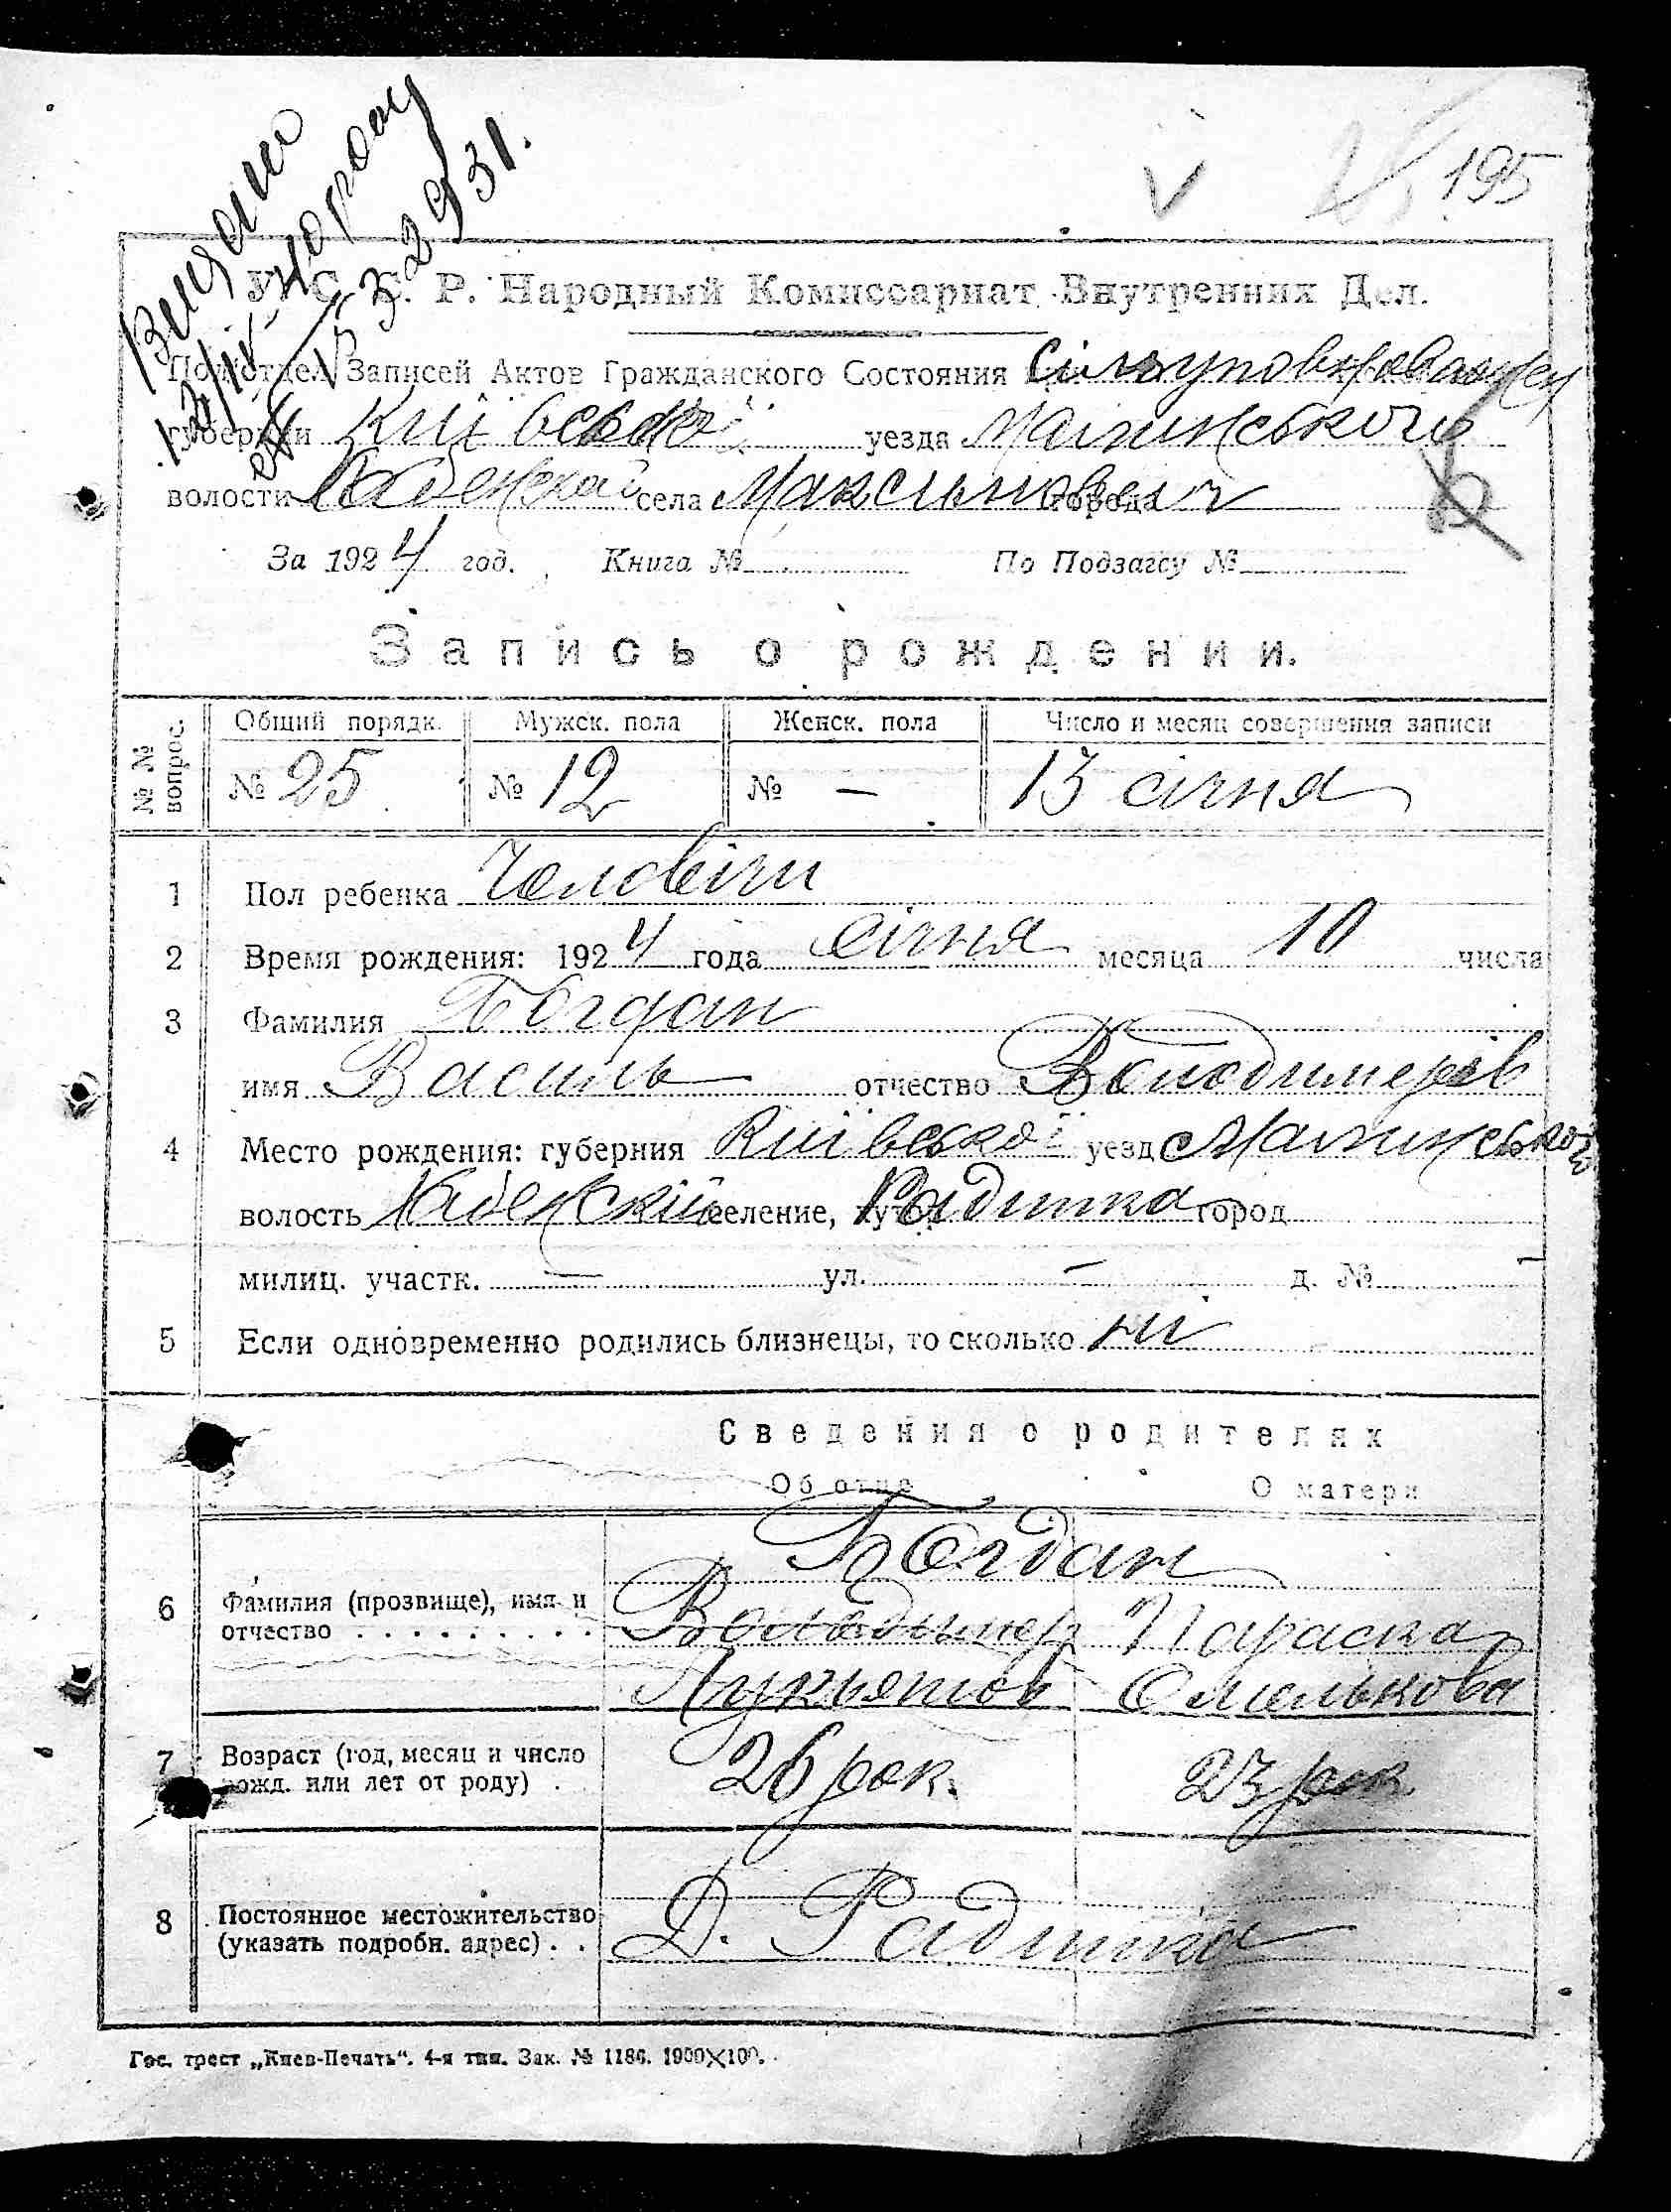 Видано
195
У. С. С. Р. Народный Комиссариат Внутренних Дел.
Подотдел Записей Актов Гражданского Состояния
губернии Київської уезда Малинського
волости села Максимович города
За 1924 год. Книга № По Подзагсу №
Запись о рождении.
№ № вопрос. Общий порядк. Мужск. пола Женск. пола Число и месяц совершения записи
№ 25 № 12 № — 13 січня
1 Пол ребенка Чоловічи
2 Время рождения: 1924 года січня месяца 10 числа
3 Фамилия Богдан
имя Василь отчество Володимерів
4 Место рождения: губерния Київської уезд Малинського
волость селение, хутор Радинка город
милиц. участк. — ул. — д. № —
5 Если одновременно родились близнецы, то сколько ні
Сведения о родителях
Об отце О матери
Богдан
6 Фамилия (прозвище), имя и отчество . . . . . . . . . Володимер Параска
Лукьянов Омелькова
7 Возраст (год, месяц и число рожд. или лет от роду) . 26 рок. 23 рок.
8 Постоянное местожительство (указать подробн. адрес) . . Д. Радинка
Гос. трест „Киев-Печать“. 4-я тип. Зак. № 1186. 1900×100.